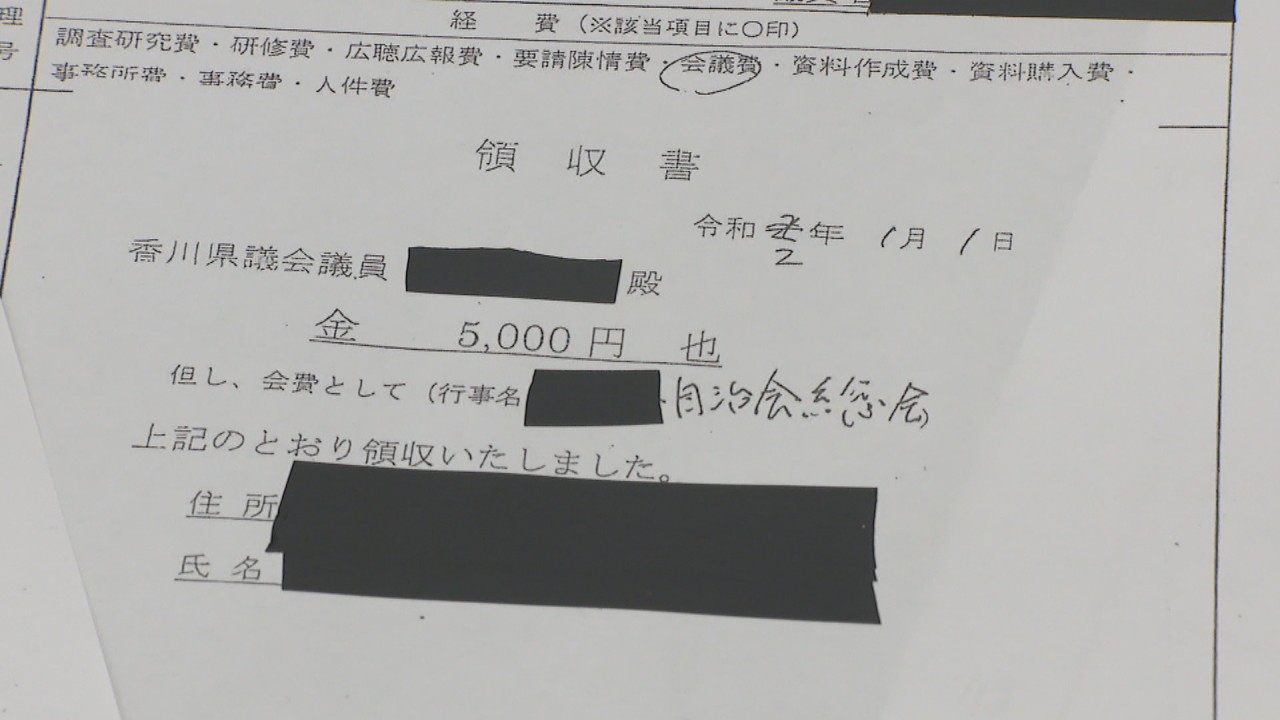 経 費(※該当項目に〇印)
調査研究費・研修費・広聴広報費・要請陳情費・会議費・資料作成費・資料購入費・
事務所費・事務費・人件費
理
号
領 収 書
令和 年 1月 1日
2
香川県議会議員 殿
金 5,000円 也
但し、会費として(行事名 自治会総会)
上記のとおり領収いたしました。
住 所
氏 名